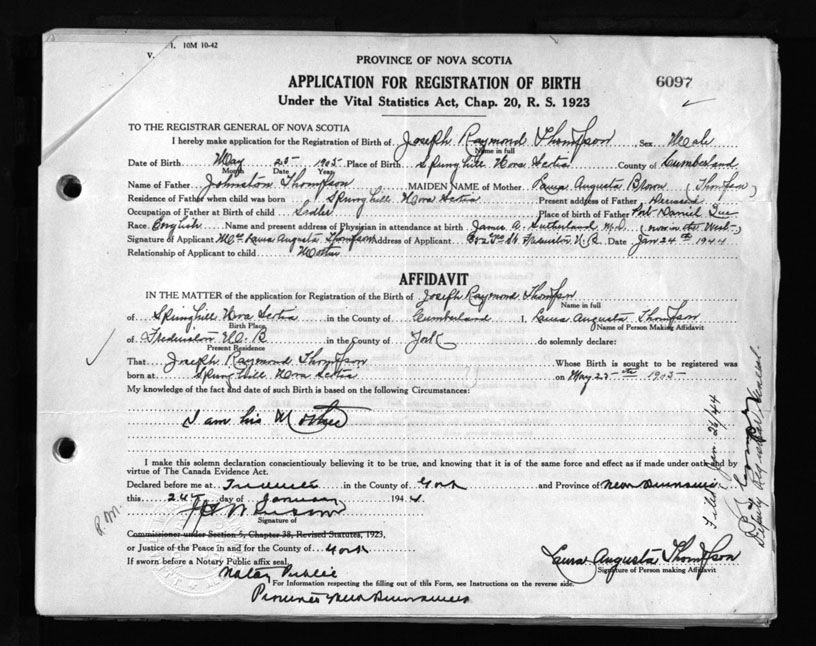 V. 1. 10M 10-42
PROVINCE OF NOVA SCOTIA
APPLICATION FOR REGISTRATION OF BIRTH
6097
Under the Vital Statistics Act, Chap. 20, R. S. 1923
TO THE REGISTRAR GENERAL OF NOVA SCOTIA
I hereby make application for the Registration of Birth of Joseph Raymond Thompson Sex Male
Name in full
Date of Birth May 25 1905 Place of Birth Springhill Nova Scotia County of Cumberland
Month Date Year
Name of Father Johnston Thompson MAIDEN NAME of Mother Laura Augusta Brown (Thompson)
Residence of Father when child was born Springhill Nova Scotia Present address of Father Deceased
Occupation of Father at Birth of child Place of Birth of Father Port Daniel Que
Race English Name and present address of Physician in attendance at birth James A. Sutherland M.D. (now in the West)
Signature of Applicant Mrs Laura Augusta Thompson Address of Applicant St. Fredericton N.B. Date Jan 24th 1944
Relationship of Applicant to child Mother
AFFIDAVIT
IN THE MATTER of the application for Registration of the Birth of Joseph Raymond Thompson
Name in full
of Springhill Nova Scotia in the County of Cumberland I, Laura Augusta Thompson
Birth Place Name of Person Making Affidavit
of Fredericton N.B in the County of York do solemnly declare:
Present Residence
That Joseph Raymond Thompson Whose Birth is sought to be registered was
born at Springhill Nova Scotia on May 25th 1905
My knowledge of the fact and date of such Birth is based on the following Circumstances:
I am his Mother
I make this solemn declaration conscientiously believing it to be true, and knowing that it is of the same force and effect as if made under oath and by
virtue of The Canada Evidence Act.
Declared before me at Fredericton in the County of York and Province of New Brunswick
this 24th day of January 1944.
Signature of
Commissioner under Section 5, Chapter 38, Revised Statutes, 1923,
or Justice of the Peace in and for the County of York
If sworn before a Notary Public affix seal.
Laura Augusta Thompson
Signature of Person making Affidavit
Notary Public
For Information respecting the filling out of this Form, see Instructions on the reverse side.
Province of New Brunswick
Filed Jan. 26/44
Deputy Registrar General.